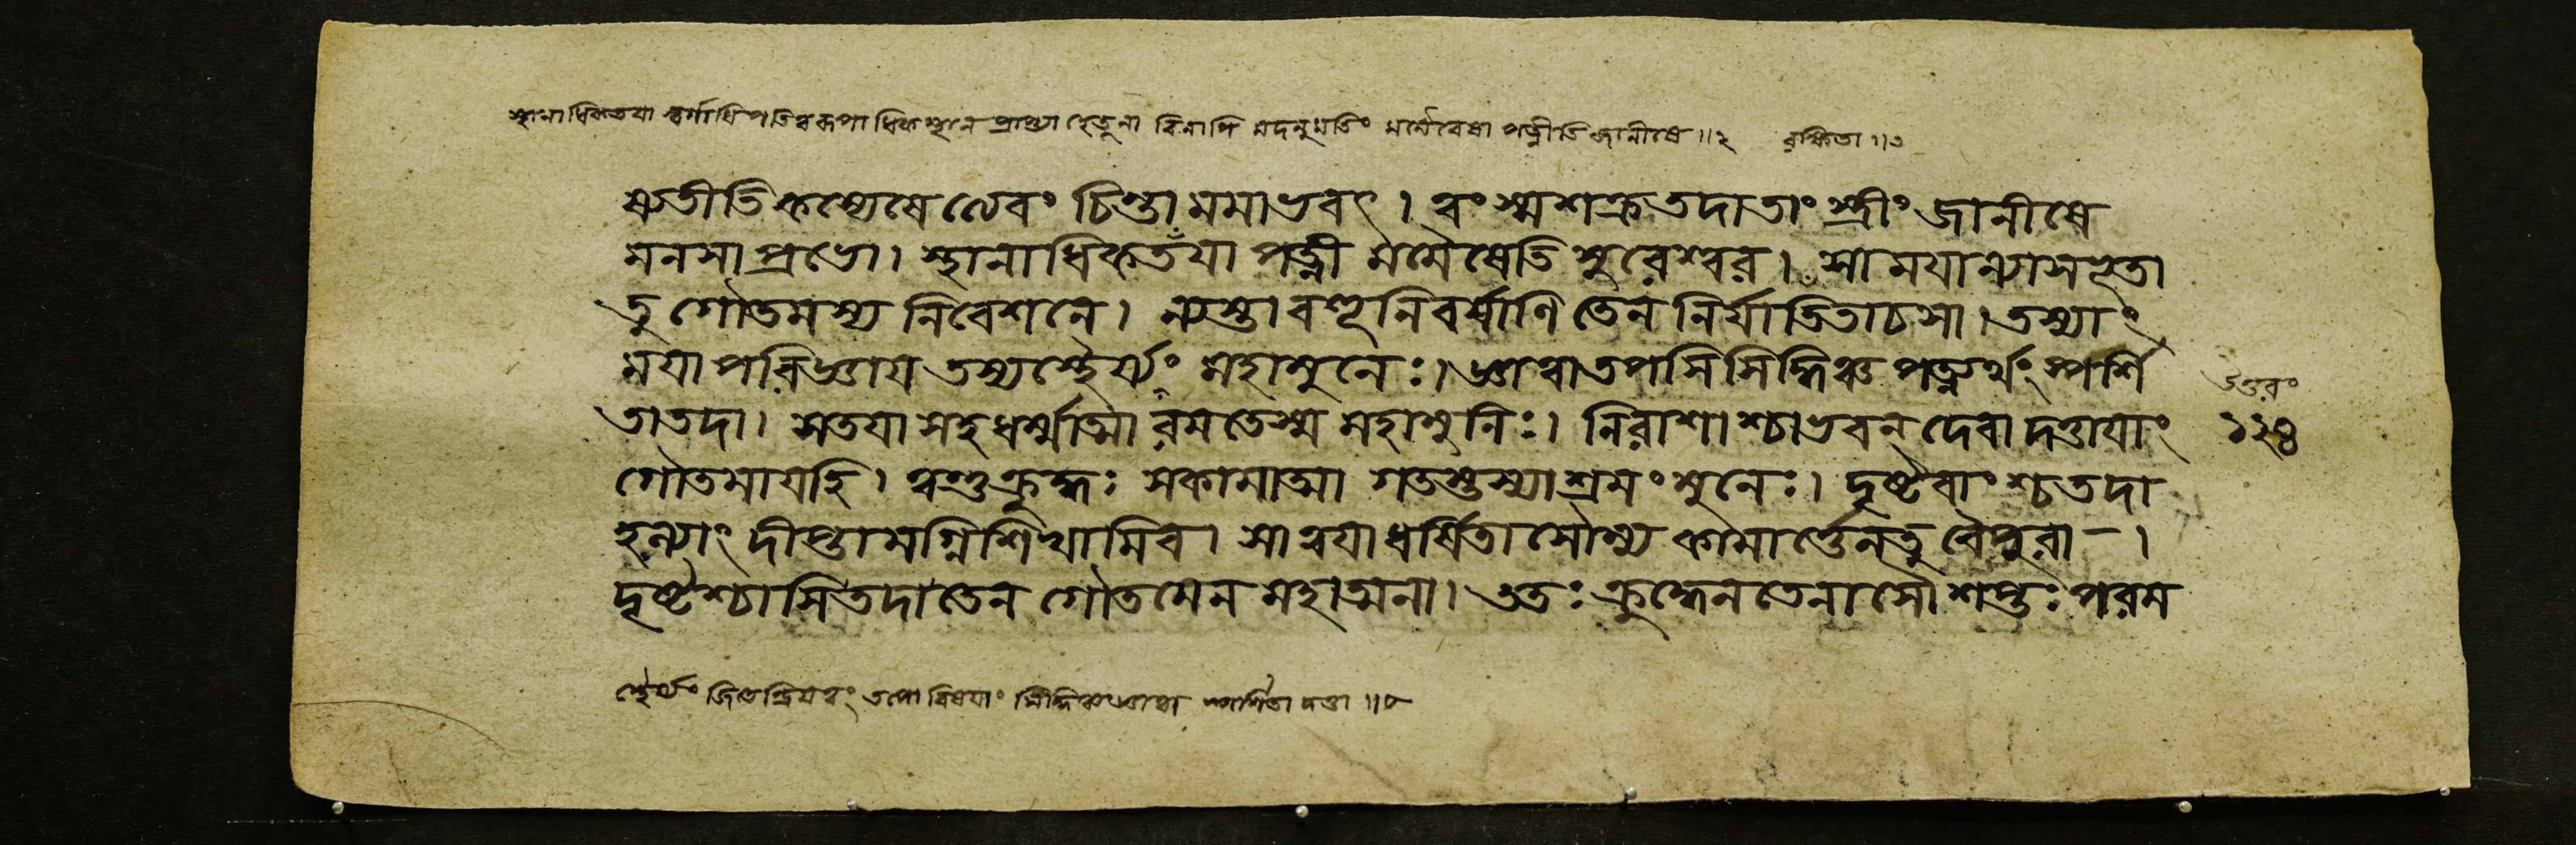 স্থানাধিকতয়া স্বর্গাধিপতিত্বরূপাধিকস্থানপ্রাপ্ত্যা হেতুনা বিনাপি মদনুমতিং মমৈবৈষা পত্নীতি জানীষে ॥২ রক্ষিতা ॥৩
ষ্যতীতি কস্যৈষেত্যেবং চিন্তা মমাভবৎ । ত্বং স্ম শক্র তদা তাং স্ত্রীং জানীষে
মনসা প্রভো। স্থানাধিকতয়া পত্নী মমৈষেতি সুরেশ্বর । সা ময়া ন্যাসভূতা
তু গৌতমস্য নিবেশনে। ন্যস্তা বহূনি বর্ষাণি তেন নির্যাতিতা চ সা। তস্যাং
ময়া পরিজ্ঞায় তস্য স্থৈর্য্যং মহামুনেঃ। জ্ঞাত্বা তপসি সিদ্ধিঞ্চ পত্ন্যর্থং স্পর্শি
উত্তরং
তা তদা। স তয়া সহ ধর্ম্মাত্মা রমতে স্ম মহামুনিঃ। নিরাশাশ্চাভবন্ দেবা দত্তায়াং
১২৪
গৌতমায় হি। ত্বন্তু ক্রুদ্ধঃ স কামাত্মা গতস্তস্যাশ্রমং মুনেঃ। দৃষ্টবাংশ্চ তদা
দীপ্তামগ্নিশিখামিব। সা ত্বয়া ধর্ষিতা সৌম্য কামার্ত্তেন তু বৈ পুরা ।
দৃষ্টশ্চাসি তদা তেন গৌতমেন মহাত্মনা। ততঃ ক্রুদ্ধেন তেনাসৌ শপ্তঃ পরম
স্থৈর্য্যং জিতেন্দ্রিয়ত্বং তপোবিষয়াং সিদ্ধিঞ্চ জ্ঞাত্বা স্পর্শিতা দত্তা ॥